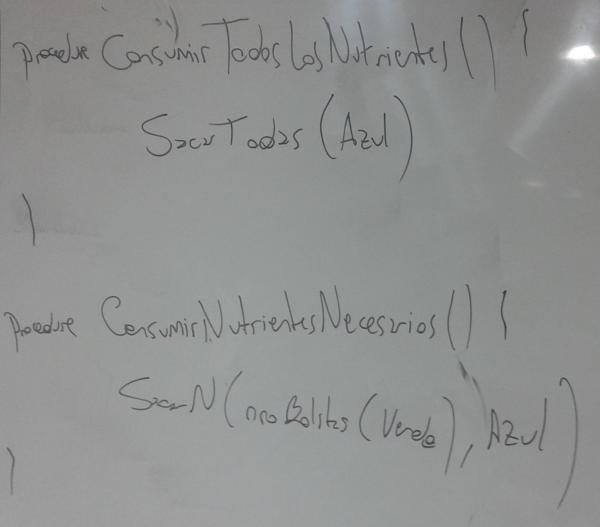 procedure ConsumirTodosLosNutrientes() {
SacarTodas (Azul)
}
procedure ConsumirNutrientesNecesarios() {
SacarN(nroBolitas(Verde), Azul)
}